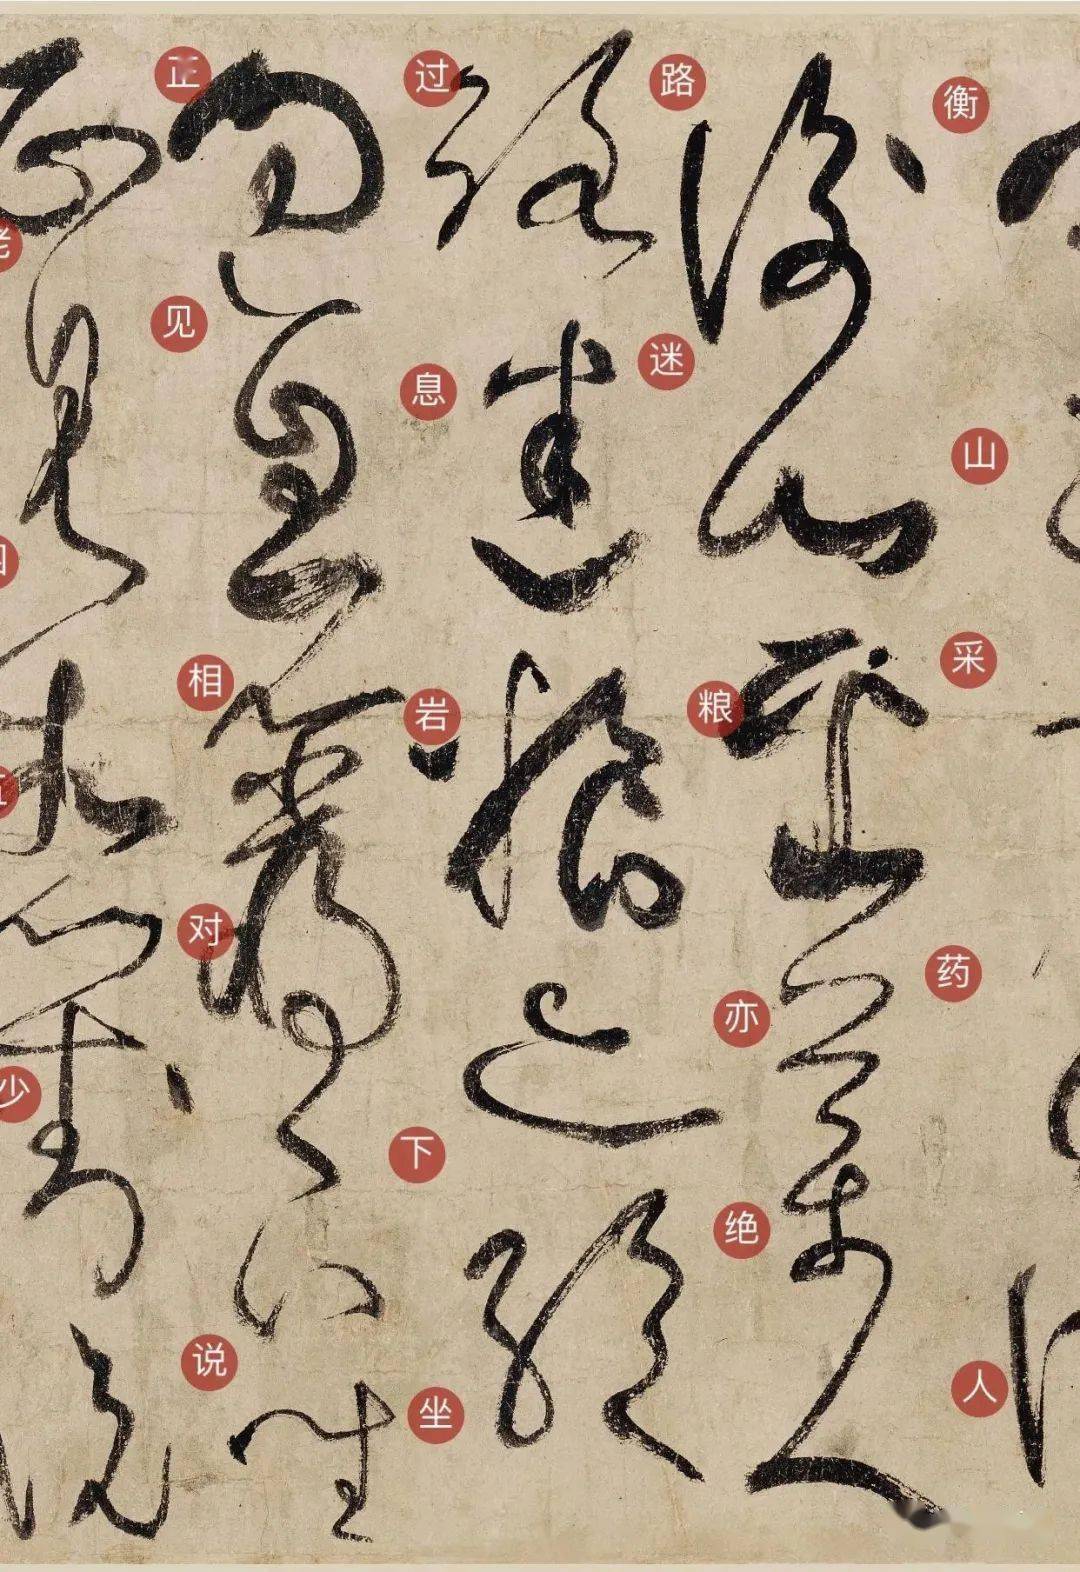 衡山采药人
路迷粮亦绝
过息岩下坐
正见相对说
少